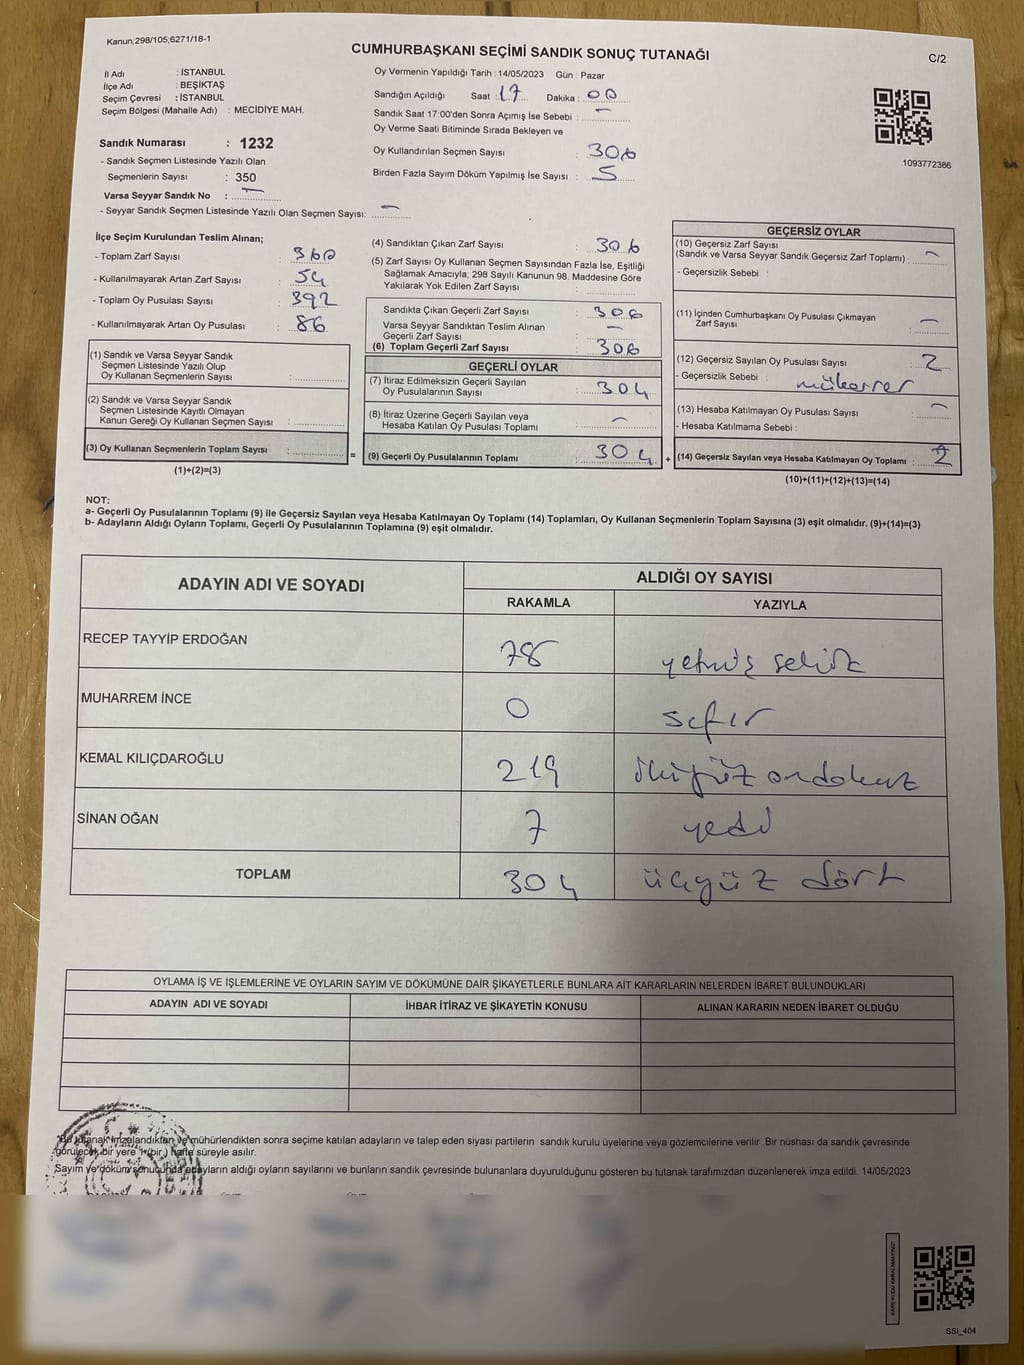 Kanun;298/105;6271/18-1
CUMHURBAŞKANI SEÇİMİ SANDIK SONUÇ TUTANAĞI
C/2
İl Adı : İSTANBUL
İlçe Adı : BEŞİKTAŞ
Seçim Çevresi : İSTANBUL
Seçim Bölgesi (Mahalle Adı) : MECİDİYE MAH.
Sandık Numarası : 1232
- Sandık Seçmen Listesinde Yazılı Olan
Seçmenlerin Sayısı : 350
Varsa Seyyar Sandık No : —
- Seyyar Sandık Seçmen Listesinde Yazılı Olan Seçmen Sayısı: —
Oy Vermenin Yapıldığı Tarih : 14/05/2023 Gün : Pazar
Sandığın Açıldığı Saat : 17 Dakika : 00
Sandık Saat 17:00'den Sonra Açımış İse Sebebi : —
Oy Verme Saati Bitiminde Sırada Bekleyen ve
Oy Kullandırılan Seçmen Sayısı : 306
Birden Fazla Sayım Döküm Yapılmış İse Sayısı : 5
1093772386
İlçe Seçim Kurulundan Teslim Alınan;
- Toplam Zarf Sayısı : 360
- Kullanılmayarak Artan Zarf Sayısı : 54
- Toplam Oy Pusulası Sayısı : 392
- Kullanılmayarak Artan Oy Pusulası : 86
(1) Sandık ve Varsa Seyyar Sandık
Seçmen Listesinde Yazılı Olup
Oy Kullanan Seçmenlerin Sayısı :
(2) Sandık ve Varsa Seyyar Sandık
Seçmen Listesinde Kayıtlı Olmayan
Kanun Gereği Oy Kullanan Seçmen Sayısı :
(3) Oy Kullanan Seçmenlerin Toplam Sayısı :
(1)+(2)=(3)
(4) Sandıktan Çıkan Zarf Sayısı : 306
(5) Zarf Sayısı Oy Kullanan Seçmen Sayısından Fazla İse, Eşitliği
Sağlamak Amacıyla; 298 Sayılı Kanunun 98. Maddesine Göre
Yakılarak Yok Edilen Zarf Sayısı :
Sandıkta Çıkan Geçerli Zarf Sayısı : 306
Varsa Seyyar Sandıktan Teslim Alınan
Geçerli Zarf Sayısı : —
(6) Toplam Geçerli Zarf Sayısı : 306
GEÇERLİ OYLAR
(7) İtiraz Edilmeksizin Geçerli Sayılan
Oy Pusulalarının Sayısı : 304
(8) İtiraz Üzerine Geçerli Sayılan veya
Hesaba Katılan Oy Pusulası Toplamı : —
= (9) Geçerli Oy Pusulalarının Toplamı : 304 +
GEÇERSİZ OYLAR
(10) Geçersiz Zarf Sayısı
(Sandık ve Varsa Seyyar Sandık Geçersiz Zarf Toplamı) : —
- Geçersizlik Sebebi :
(11) İçinden Cumhurbaşkanı Oy Pusulası Çıkmayan
Zarf Sayısı : —
(12) Geçersiz Sayılan Oy Pusulası Sayısı : 2
- Geçersizlik Sebebi : mükerrer
(13) Hesaba Katılmayan Oy Pusulası Sayısı : —
- Hesaba Katılmama Sebebi :
(14) Geçersiz Sayılan veya Hesaba Katılmayan Oy Toplamı : 2
(10)+(11)+(12)+(13)=(14)
NOT:
a- Geçerli Oy Pusulalarının Toplamı (9) ile Geçersiz Sayılan veya Hesaba Katılmayan Oy Toplamı (14) Toplamları, Oy Kullanan Seçmenlerin Toplam Sayısına (3) eşit olmalıdır. (9)+(14)=(3)
b- Adayların Aldığı Oyların Toplamı, Geçerli Oy Pusulalarının Toplamına (9) eşit olmalıdır.
ADAYIN ADI VE SOYADI
ALDIĞI OY SAYISI
RAKAMLA YAZIYLA
RECEP TAYYİP ERDOĞAN 78 yetmiş sekiz
MUHARREM İNCE 0 sıfır
KEMAL KILIÇDAROĞLU 219 ikiyüz ondokuz
SİNAN OĞAN 7 yedi
TOPLAM 304 üçyüz dört
OYLAMA İŞ VE İŞLEMLERİNE VE OYLARIN SAYIM VE DÖKÜMÜNE DAİR ŞİKAYETLERLE BUNLARA AİT KARARLARIN NELERDEN İBARET BULUNDUKLARI
ADAYIN ADI VE SOYADI İHBAR İTİRAZ VE ŞİKAYETİN KONUSU ALINAN KARARIN NEDEN İBARET OLDUĞU
*Bu tutanak imzalandıktan ve mühürlendikten sonra seçime katılan adayların ve talep eden siyasi partilerin sandık kurulu üyelerine veya gözlemcilerine verilir. Bir nüshası da sandık çevresinde
görülecek bir yere 1 (bir) hafta süreyle asılır.
Sayım ve döküm sonucunda adayların aldığı oyların sayılarını ve bunların sandık çevresinde bulunanlara duyurulduğunu gösteren bu tutanak tarafımızdan düzenlenerek imza edildi. 14/05/2023
SSİ_404